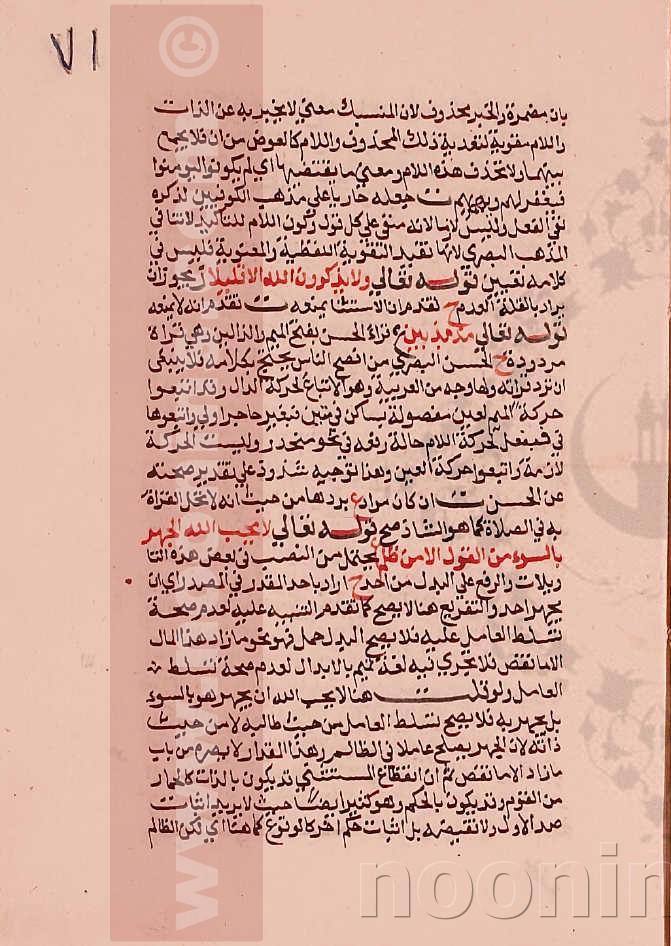 ٧١
بان مضمرة والخبر محذوف لان المنسبك معنى لا يخبر به عن الذات
واللام مقوية لتعدية ذلك المحذوف واللام كالعوض من ان فلا يجمع
بينهما ولا تحذف هذه اللام ومعنى ما تقتضيه اي لم يكونوا ليومنوا
فيغفر لهم ويهديهم ت جعله جاريا على مذهب الكوفيين لذكره
نفي الفعل وليس لازما لانه متفق على كل قول وكون اللام للتاكيد لا تنافي
المذهب البصري لانها تفيد التقوية اللفظية والمعنوية فليس في
كلامه تعيين قوله تعالى ولا يذكورن الله الا قليلا يجوز ان
يراد بالقلة العدم ح تقدم ان الاستثنا يمنعه ت تقدم انه لا يمنعه
قوله تعالى مذبذبين ع قراءة الحسن بفتح الميم والذالين وهي قراة
مردودة ح الحسن البصري من افصح الناس يحتج بكلامه فلا ينبغي
ان ترد قراته ولها وجه من العربية وهو الاتباع لحركة الذال وقد اتبعوا
حركة الميم لعين مفصولة بساكن في منتن فبغير حاجز اولى واتبعوها
في منفعل لحركة اللام حالة رفعه في نحو منحدر وليست الحركة
لازمة واتبعوا حركة العين وهذا توجيه شذوذ على تقدير صحته
عن الحسن ت ان كان مراد ع بردها من حيث انه لا تحل القراة
به في الصلاة كما هو الشاذ صح قوله تعالى لا يحب الله الجهر
بالسوء من القول الا من ظلم يحتمل من النصب في بعض هذه التا
ويلات والرفع على البدل من احد ح اراد باحد المقدر في المصدر اي ان
يجهر احد والتفريع هنا لا يصح كما تقدم التنبيه عليه لعدم صحة
تسلط العامل عليه فلا يصح البدل حمل فهو نحو ما زاد هذا المال
الا ما نقص فلا يجري فيه لغة تميم بالابدال لعدم صحة تسلط
العامل ولو قلت هنا لا يحب الله ان يجهر هو بالسوء
بل يجهر به فلا يصح تسلط العامل من حيث طالبه لا من حيث
ذاته لان الجهر يصلح عاملا في الظالم وهذا القدار لا يصيره من باب
ما زاد الا ما نقص ثم ان انقطاع المستثنى قد يكون بالذات كالحمار
من القوم وقد يكون بالحكم وهو كثير ايضا حيث لا يريد اثبات
ضد الاول ولا نقيضه بل اثبات حكم اخر كالو نوع كما هنا اي لكن الظالم
www.noonin
©
noonin